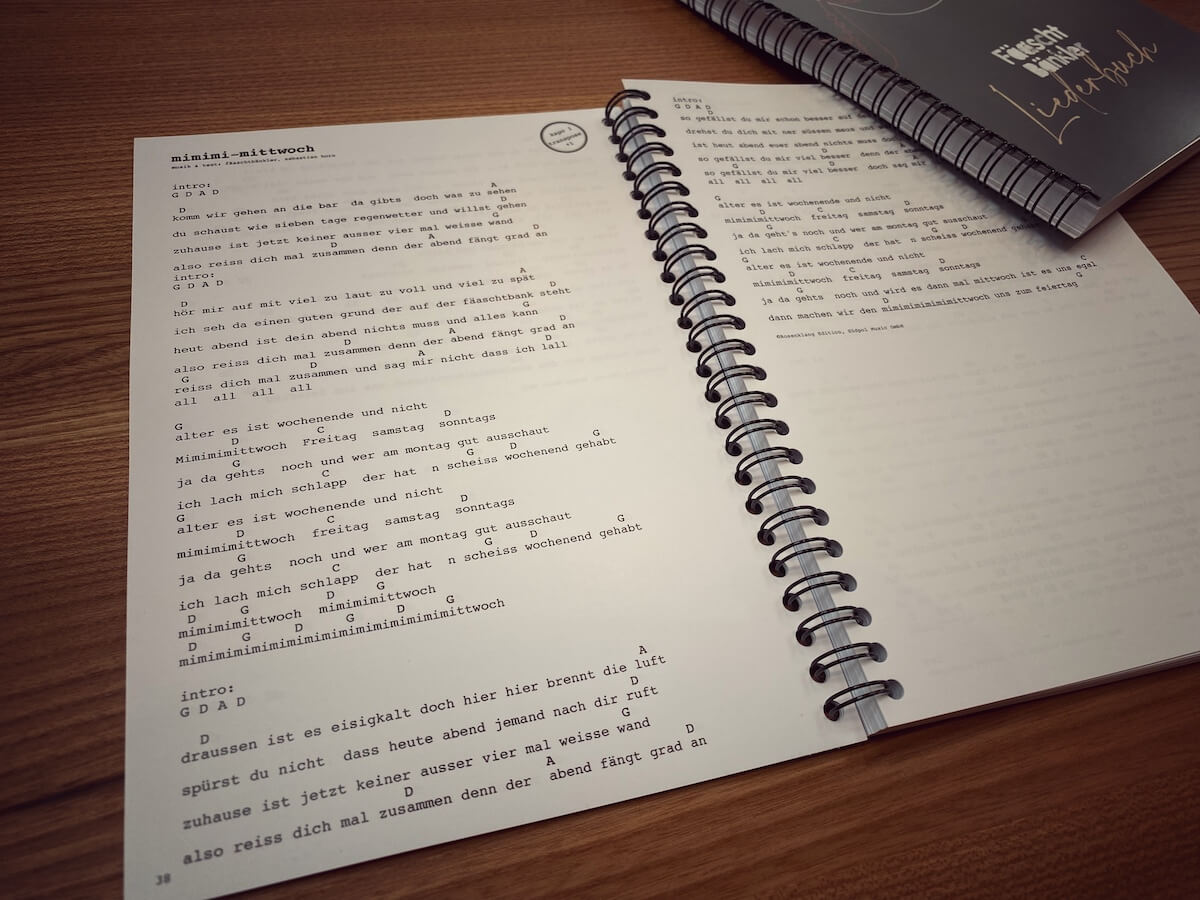 mimimi-mittwoch
musik & text: fäaschtbänkler, sebastian horn
kapo 1
transpose
+1
intro:
G D A D
D A
komm wir gehen an die bar da gibts doch was zu sehen
D
du schaust wie sieben tage regenwetter und willst gehen
G
zuhause ist jetzt keiner ausser vier mal weisse wand
D A D
also reiss dich mal zusammen denn der abend fängt grad an
intro:
G D A D
D A
hör mir auf mit viel zu laut zu voll und viel zu spät
D
ich seh da einen guten grund der auf der fäaschtbank steht
G
heut abend ist dein abend nichts muss und alles kann
D A D
also reiss dich mal zusammen denn der abend fängt grad an
G D A D
reiss dich mal zusammen und sag mir nicht dass ich lall
all all all all
G
alter es ist wochenende und nicht
D C D
Mimimimittwoch Freitag samstag sonntags
G
ja da gehts noch und wer am montag gut ausschaut
C G D G
ich lach mich schlapp der hat n scheiss wochenend gehabt
G
alter es ist wochenende und nicht
D C D
mimimimittwoch freitag samstag sonntags
G
ja da gehts noch und wer am montag gut ausschaut
C G D G
ich lach mich schlapp der hat n scheiss wochenend gehabt
D G D G
mimimimittwoch mimimimittwoch
D G D G D G
mimimimimimimimimimimimimimittwoch
intro:
G D A D
D A
draussen ist es eisigkalt doch hier hier brennt die luft
D
spürst du nicht dass heute abend jemand nach dir ruft
G
zuhause ist jetzt keiner ausser vier mal weisse wand
D A D
also reiss dich mal zusammen denn der abend fängt grad an
38
intro:
G D A D
D
so gefällst du mir schon besser auf
drehst du dich mit ner süssen maus und
ist heut abend euer abend nichts muss
D
so gefällst du mir viel besser denn der
G D
so gefällst du mir viel besser doch sag mir
all all all all
G
alter es ist wochenende und nicht
D C D
mimimimittwoch freitag samstag sonntags
G
ja da geht's noch und wer am montag gut ausschaut
C G D
ich lach mich schlapp der hat n scheiss wochenend
G
alter es ist wochenende und nicht
D C D
mimimimittwoch freitag samstag sonntags
G C
ja da gehts noch und wird es dann mal mittwoch ist es uns egal
D G
dann machen wir den mimimimimimittwoch uns zum feiertag
©Rosenklang Edition, Südpol Music GmbH
Fäascht
Bänkler
Liederbuch